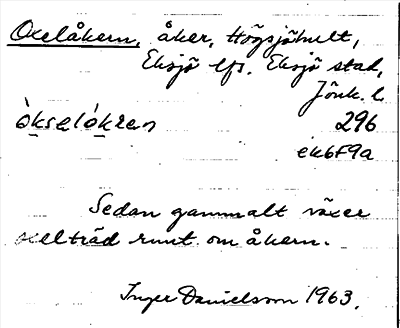 Oxelåkern, åker, Högsjöhult,
Eksjö lfs. Eksjö stad,
Jönk. l.
òkselókran 296
ek6f9a
Sedan gammalt växer
oxelträd runt om åkern.
Inger Danielsson 1963.